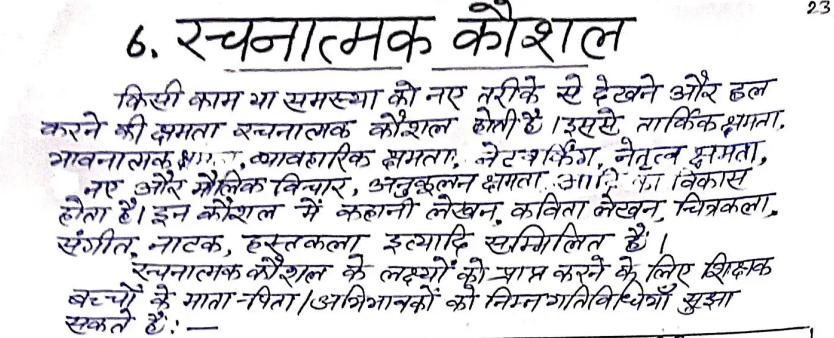 23
6. रचनात्मक कौशल
किसी काम या समस्या को नए तरीके से देखने और हल
करने की क्षमता रचनात्मक कौशल होती है। इससे तार्किक क्षमता,
भावनात्मक व्यावहारिक क्षमता, नेटवर्किंग, नेतृत्व क्षमता,
नए और मौलिक विचार, अनुकूलन क्षमता आदि का विकास
होता है। इन कौशल में कहानी लेखन, कविता लेखन, चित्रकला,
संगीत, नाटक, हस्तकला इत्यादि सम्मिलित है।
रचनात्मक कौशल के लक्ष्यों को प्राप्त करने के लिए शिक्षक
बच्चों के माता-पिता/अभिभावकों को निम्न गतिविधियाँ सुझा
सकते हैं:—